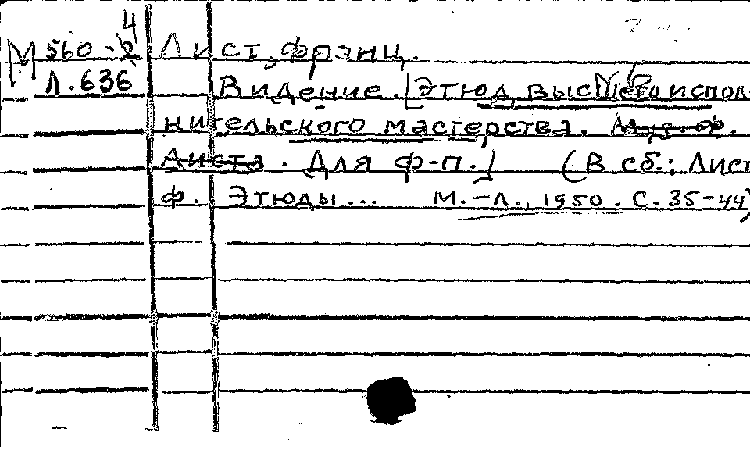 4
М 560-2 Лист, франц.
Л.636 Видение. [Этюд высшего испол
нительского мастерства. Муз. ф.
Листа. Для ф-п.] (В сб.: Лист
ф. Этюды... М.-Л., 1950. С. 35-44)